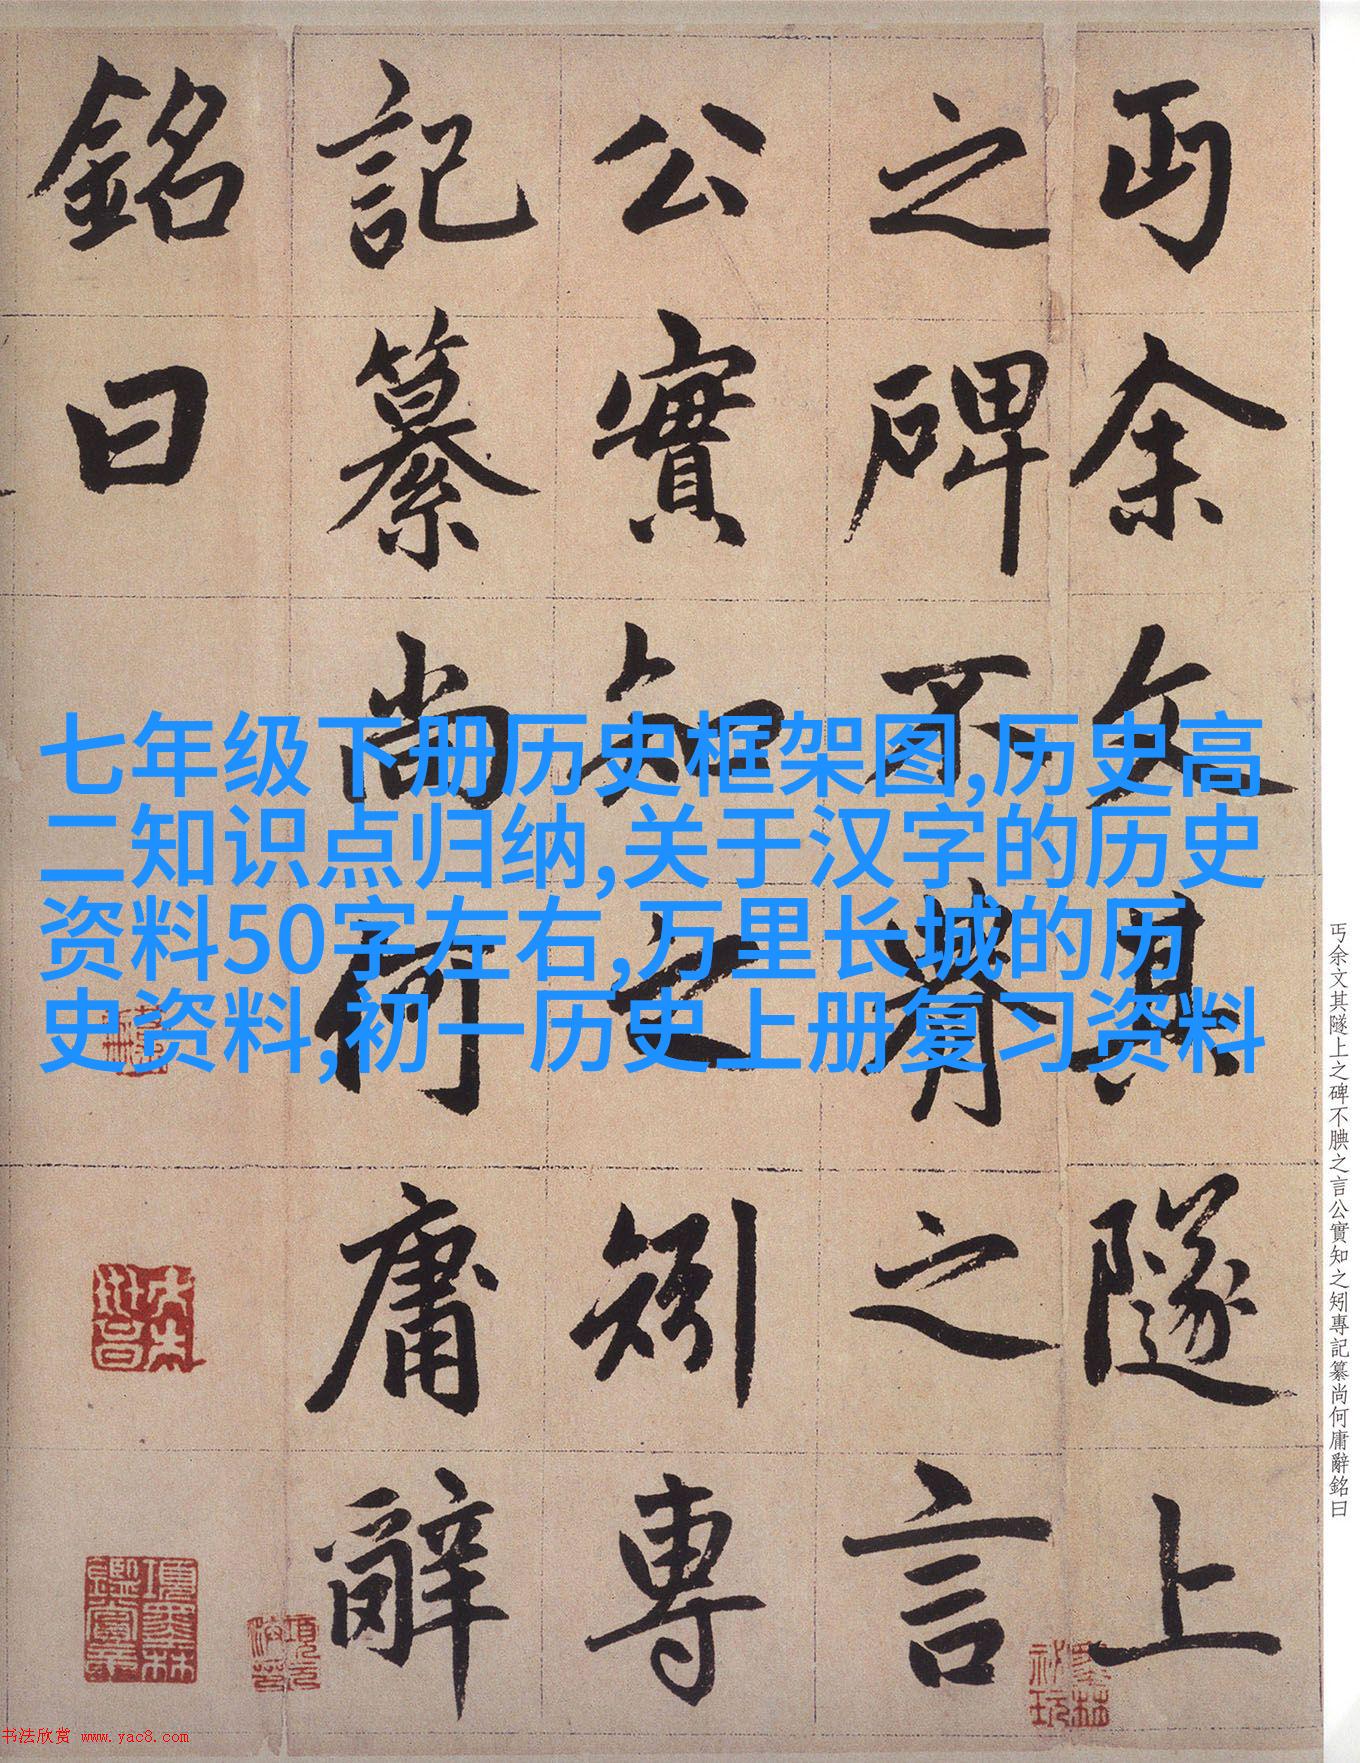 丏余文其隧上
之碑不腆之言
公實知之矧專
記纂尚何庸辭
銘曰
七年级下册历史框架图,历史高
二知识点归纳,关于汉字的历史
资料50字左右,万里长城的历
史资料,初一历史上册复习资料
丏余文其隧上之碑不腆之言公實知之矧專記纂尚何庸辭銘曰
项墨林鑑賞章
书法欣赏 www.yac8.com